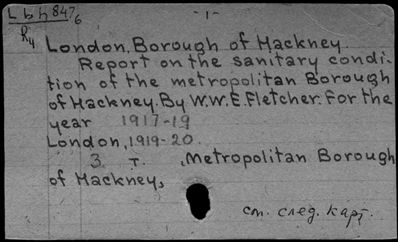 L b h 847/6
- 1 -
R4
London, Borough of Hackney.
Report on the sanitary condi-
tion of the metropolitan Borough
of Hackney. By W.W.E. Fletcher. For the
year 1917-19
London, 1919-20.
3 т. , Metropolitan Borough
of Hackney,
см. след. карт.